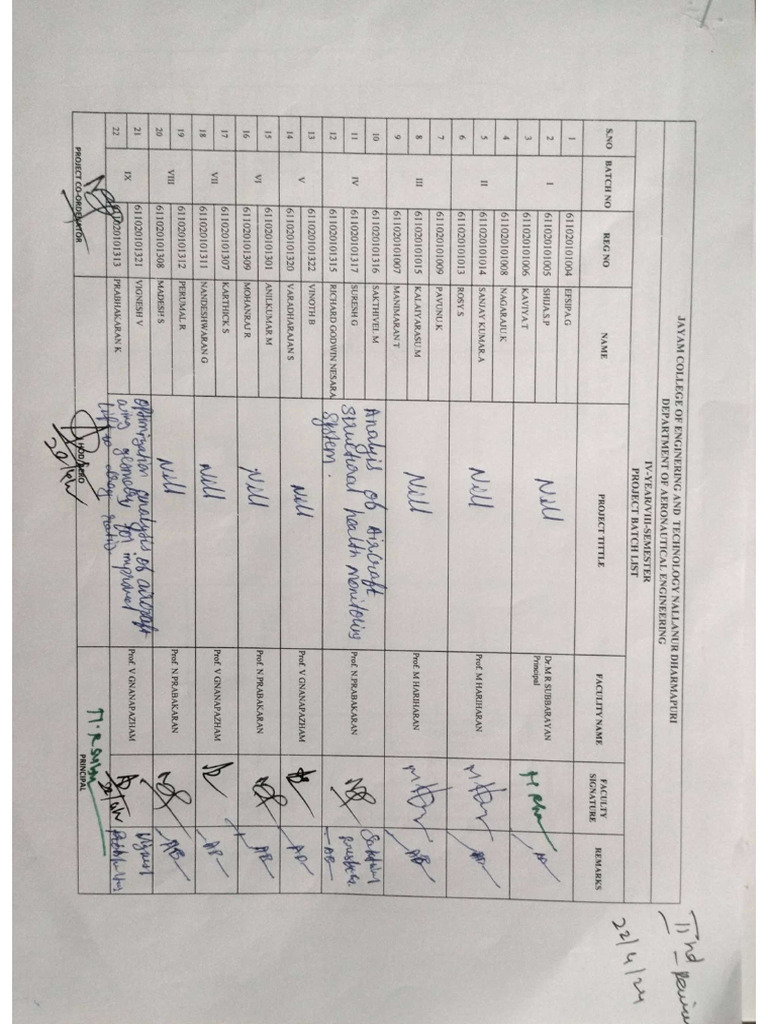 IInd - Review
22/4/24
JAYAM COLLEGE OF ENGINEERING AND TECHNOLOGY NALLANUR DHARMAPURI
DEPARTMENT OF AERONAUTICAL ENGINEERING
IV-YEAR/VIII-SEMESTER
PROJECT BATCH LIST
S.NO BATCH NO REG NO NAME PROJECT TITTLE FACULITY NAME FACULTY SIGNATURE REMARKS
1 611020101004 EFSIPA.G
2 I 611020101005 SHIJA.S.P Nill Dr M R SUBBARAYAN Principal
3 611020101006 KAVIYA.T
4 611020101008 NAGARAJU.K
5 II 611020101014 SANJAY KUMAR.A Nill Prof. M HARIHARAN AB
6 611020101013 ROSY.S
7 611020101009 PAVUNU.K
8 III 611020101015 KALAIYARASU.M Nill Prof. M HARIHARAN AB
9 611020101007 MANIMARAN T
10 611020101316 SAKTHIVEL M Analysis of Aircraft
11 IV 611020101317 SURESH G Structural health monitoring Prof. N.PRABAKARAN
12 611020101315 RICHARD GODWIN NESARA System. AB
13 V 611020101322 VINOTH B Nill Prof. V GNANAPAZHAM AB
14 611020101320 VARADHARAJAN S
15 VI 611020101301 ANILKUMAR M Nill Prof. N PRABAKARAN AB
16 611020101309 MOHANRAJ R
17 VII 611020101307 KARTHICK S Nill Prof. V GNANAPAZHAM AB
18 611020101311 NANDESHWARAN G
19 VIII 611020101312 PERUMAL R Nill Prof. N PRABAKARAN AB
20 611020101308 MADESH S
21 IX 611020101321 VIGNESH V Optimization analysis of aircraft Prof. V GNANAPAZHAM
22 611020101313 PRABHAKARAN K wing geometry for improved
Lift to drag ratio
PROJECT CO-ORDINATOR HOD/AERO PRINCIPAL
22/4/24